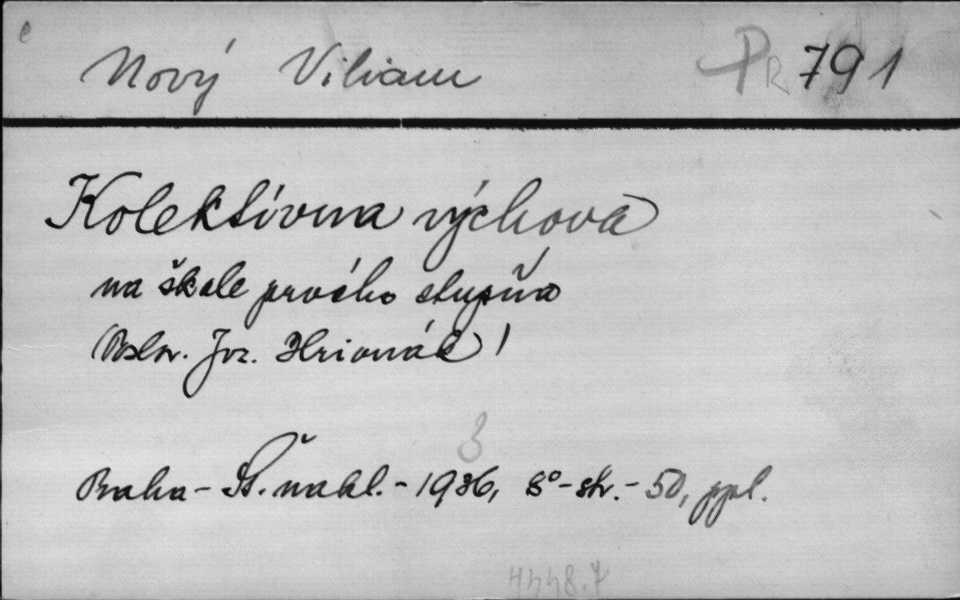 Nový Viliam PR 791
Kolektívna výchova
na škole prvého stupňa
Joz. Hrionák
Praha - Št. nakl. - 1936, 8° - str. - 50, ppl.